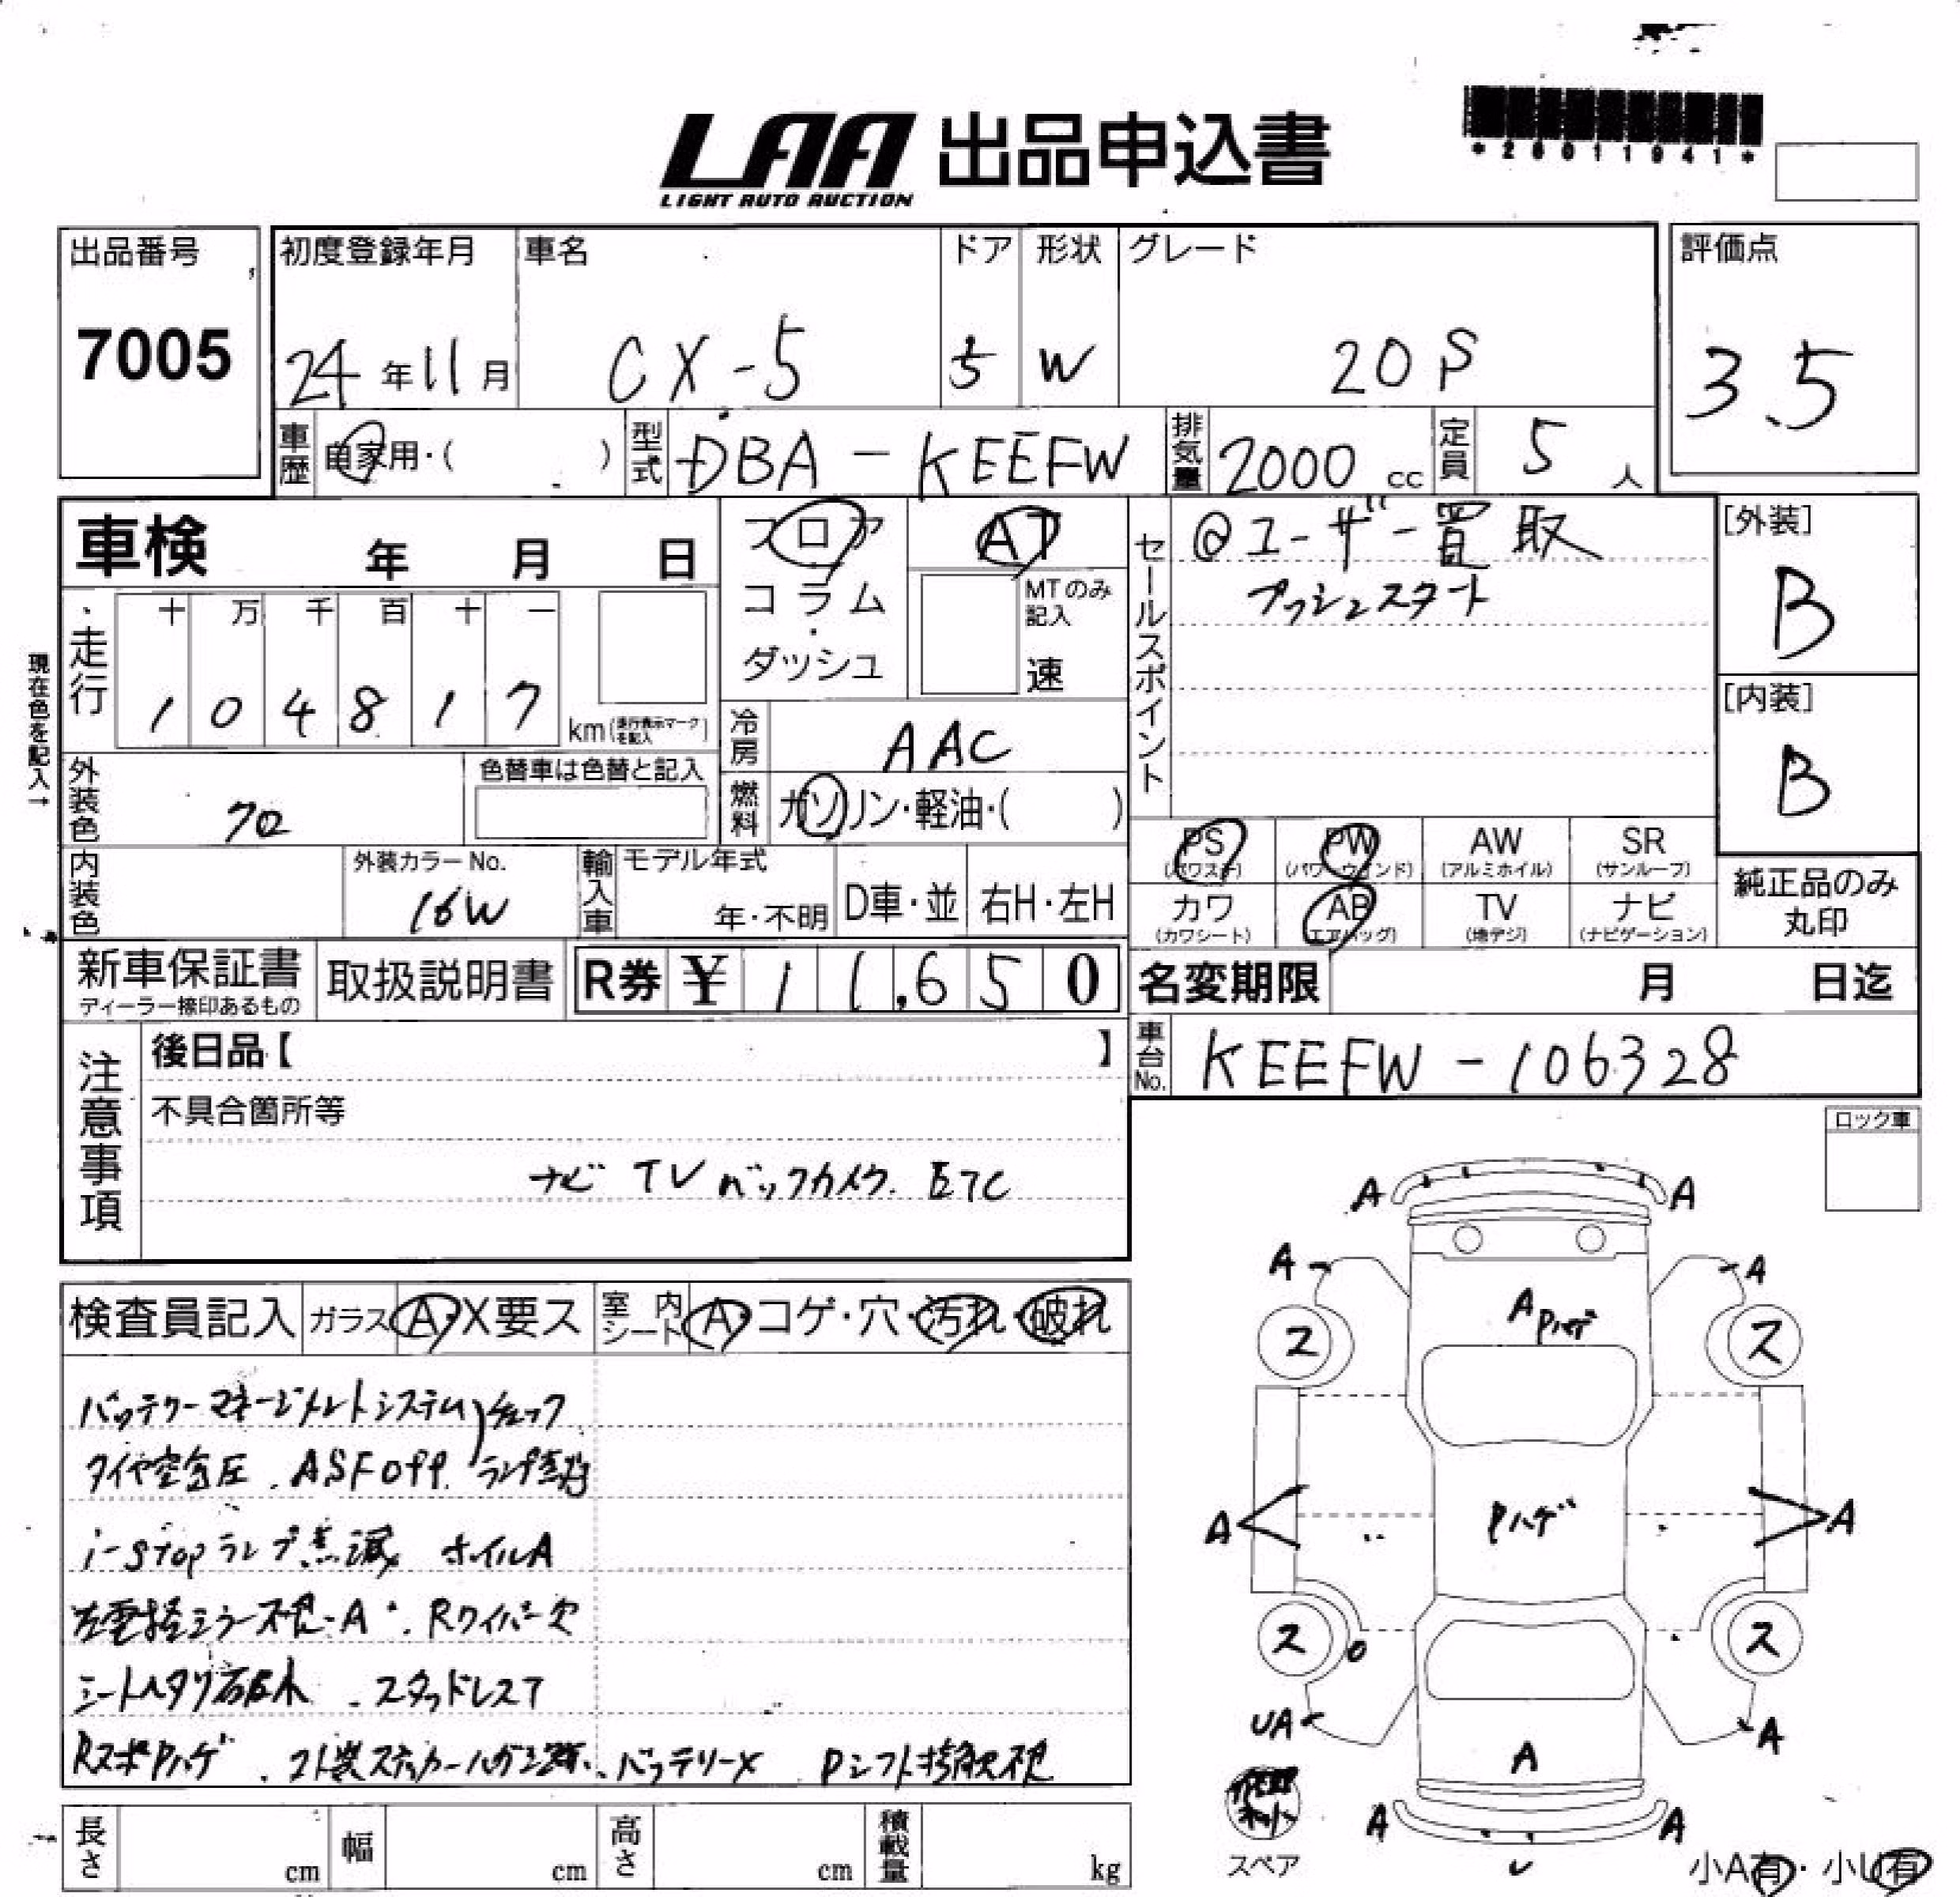 LAA 出品申込書
LIGHT AUTO AUCTION
出品番号
7005
初度登録年月
24年11月
車名
CX-5
ドア
5
形状
W
グレード
20S
評価点
3.5
車歴 自家用・( )
型式 DBA-KEEFW
排気量 2000 cc
定員 5 人
車検 年 月 日
フロア
コラム
ダッシュ
AT
MTのみ記入
速
セールスポイント
@ユーザー買取
プッシュスタート
[外装]
B
[内装]
B
現在色を記入→
走行
十 万 千 百 十 一
1 0 4 8 1 7
km(走行表示マークを記入)
冷房 AAC
燃料 ガソリン・軽油・( )
外装色 クロ
色替車は色替と記入
内装色
外装カラーNo.
16W
輸入車
モデル年式
年・不明
D車・並
右H・左H
PS (パワステ)
PW (パワーウィンド)
AW (アルミホイル)
SR (サンルーフ)
カワ (カワシート)
AB (エアバッグ)
TV (地デジ)
ナビ (ナビゲーション)
純正品のみ
丸印
新車保証書
ディーラー捺印あるもの
取扱説明書
R券 ¥ 11,650
名変期限 月 日迄
車台No. KEEFW-106328
注意事項
後日品【 】
不具合箇所等
ナビ TV バックカメラ. ETC
ロック車
検査員記入
ガラス A・X要ス
室内シート A・コゲ・穴・汚れ・破れ
バッテリーマネージメントシステム チェック
タイヤ空気圧. ASF OFF. ランプ点灯
i-stopランプ点滅 ホイルA
左電格ミラー不良・A. Rワイパー欠
シートヘタリ . スタッドレスT
RスポPハゲ . バッテリーX Pシフト
A A
A A
A Pハゲ
ス ス
A Pハゲ A
ス O ス
UA A
A
A A
U
スペア
小A有・小U有
長さ cm
幅 cm
高さ cm
積載量 kg